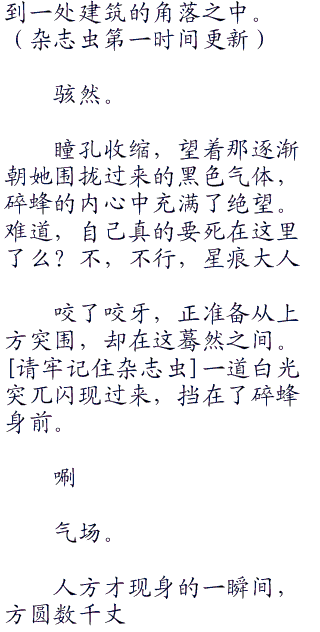 到一处建筑的角落之中。
（杂志虫第一时间更新）
骇然。
瞳孔收缩，望着那逐渐
朝她围拢过来的黑色气体，
碎蜂的内心中充满了绝望。
难道，自己真的要死在这里
了么？不，不行，星痕大人
咬了咬牙，正准备从上
方突围，却在这蓦然之间。
[请牢记住杂志虫]一道白光
突兀闪现过来，挡在了碎蜂
身前。
唰
气场。
人方才现身的一瞬间，
方圆数千丈